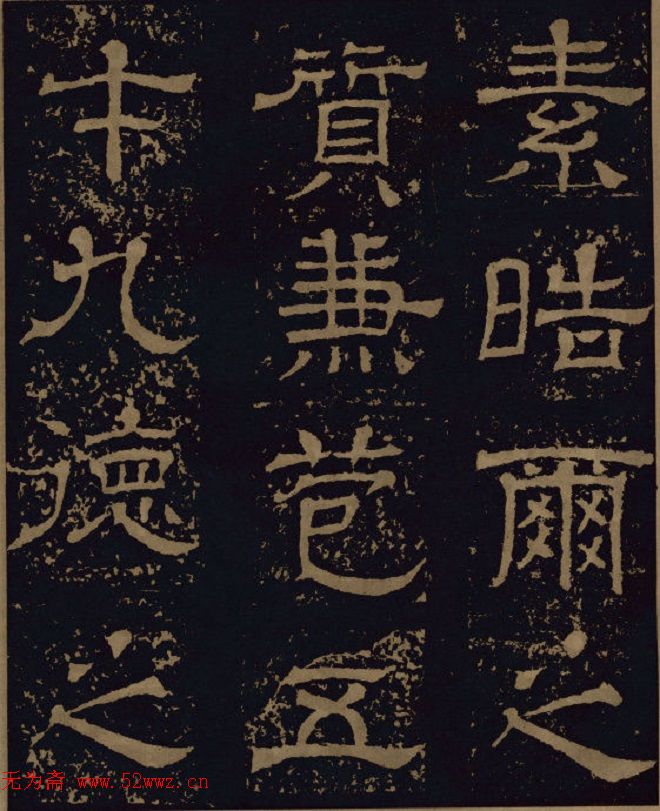 素晧爾之
質兼苞五
才九德之
无为斋 www.52wwz.cn